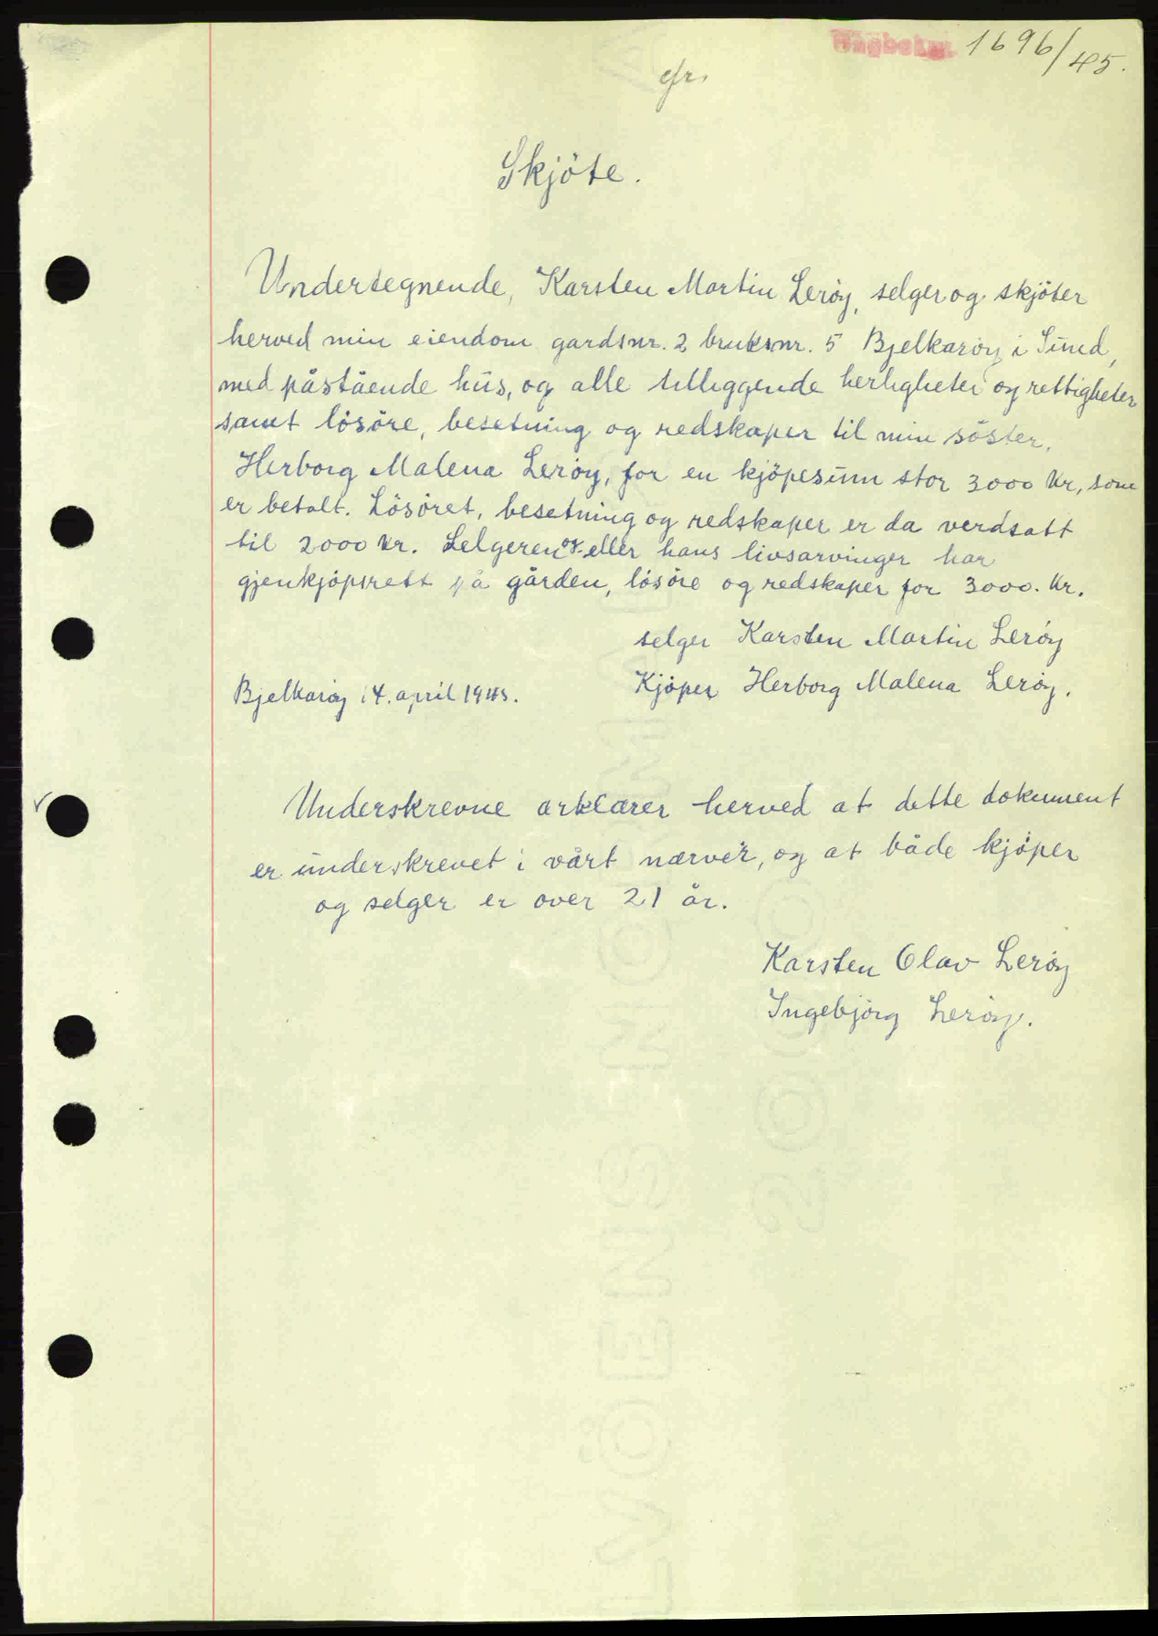 Dagboknr. 1696/45.
cfr.
Skjöte.
Undertegnende, Karsten Martin Leröy, selger og skjöter
herved min eiendom gardsnr. 2 bruksnr. 5 Bjelkaröy i Sund,
med påstående hus, og alle tilliggende herligheter og rettigheter
samt lösöre, besetning og redskaper til min söster,
Herborg Malena Leröy, for en kjöpesum stor 3000 kr, som
er betalt. Lösöret, besetning og redskaper er da verdsatt
til 2000 kr. Selgeren og-eller hans livsarvinger har
gjenkjöpsrett på gården, lösöre og redskaper for 3000. kr.
selger Karsten Martin Leröy
Bjelkaröy 14. april 1945. Kjöper Herborg Malena Leröy.
Underskrevne erklærer herved at dette dokument
er underskrevet i vårt nærvær, og at både kjöper
og selger er over 21 år.
Karsten Olav Leröy
Ingebjörg Leröy.